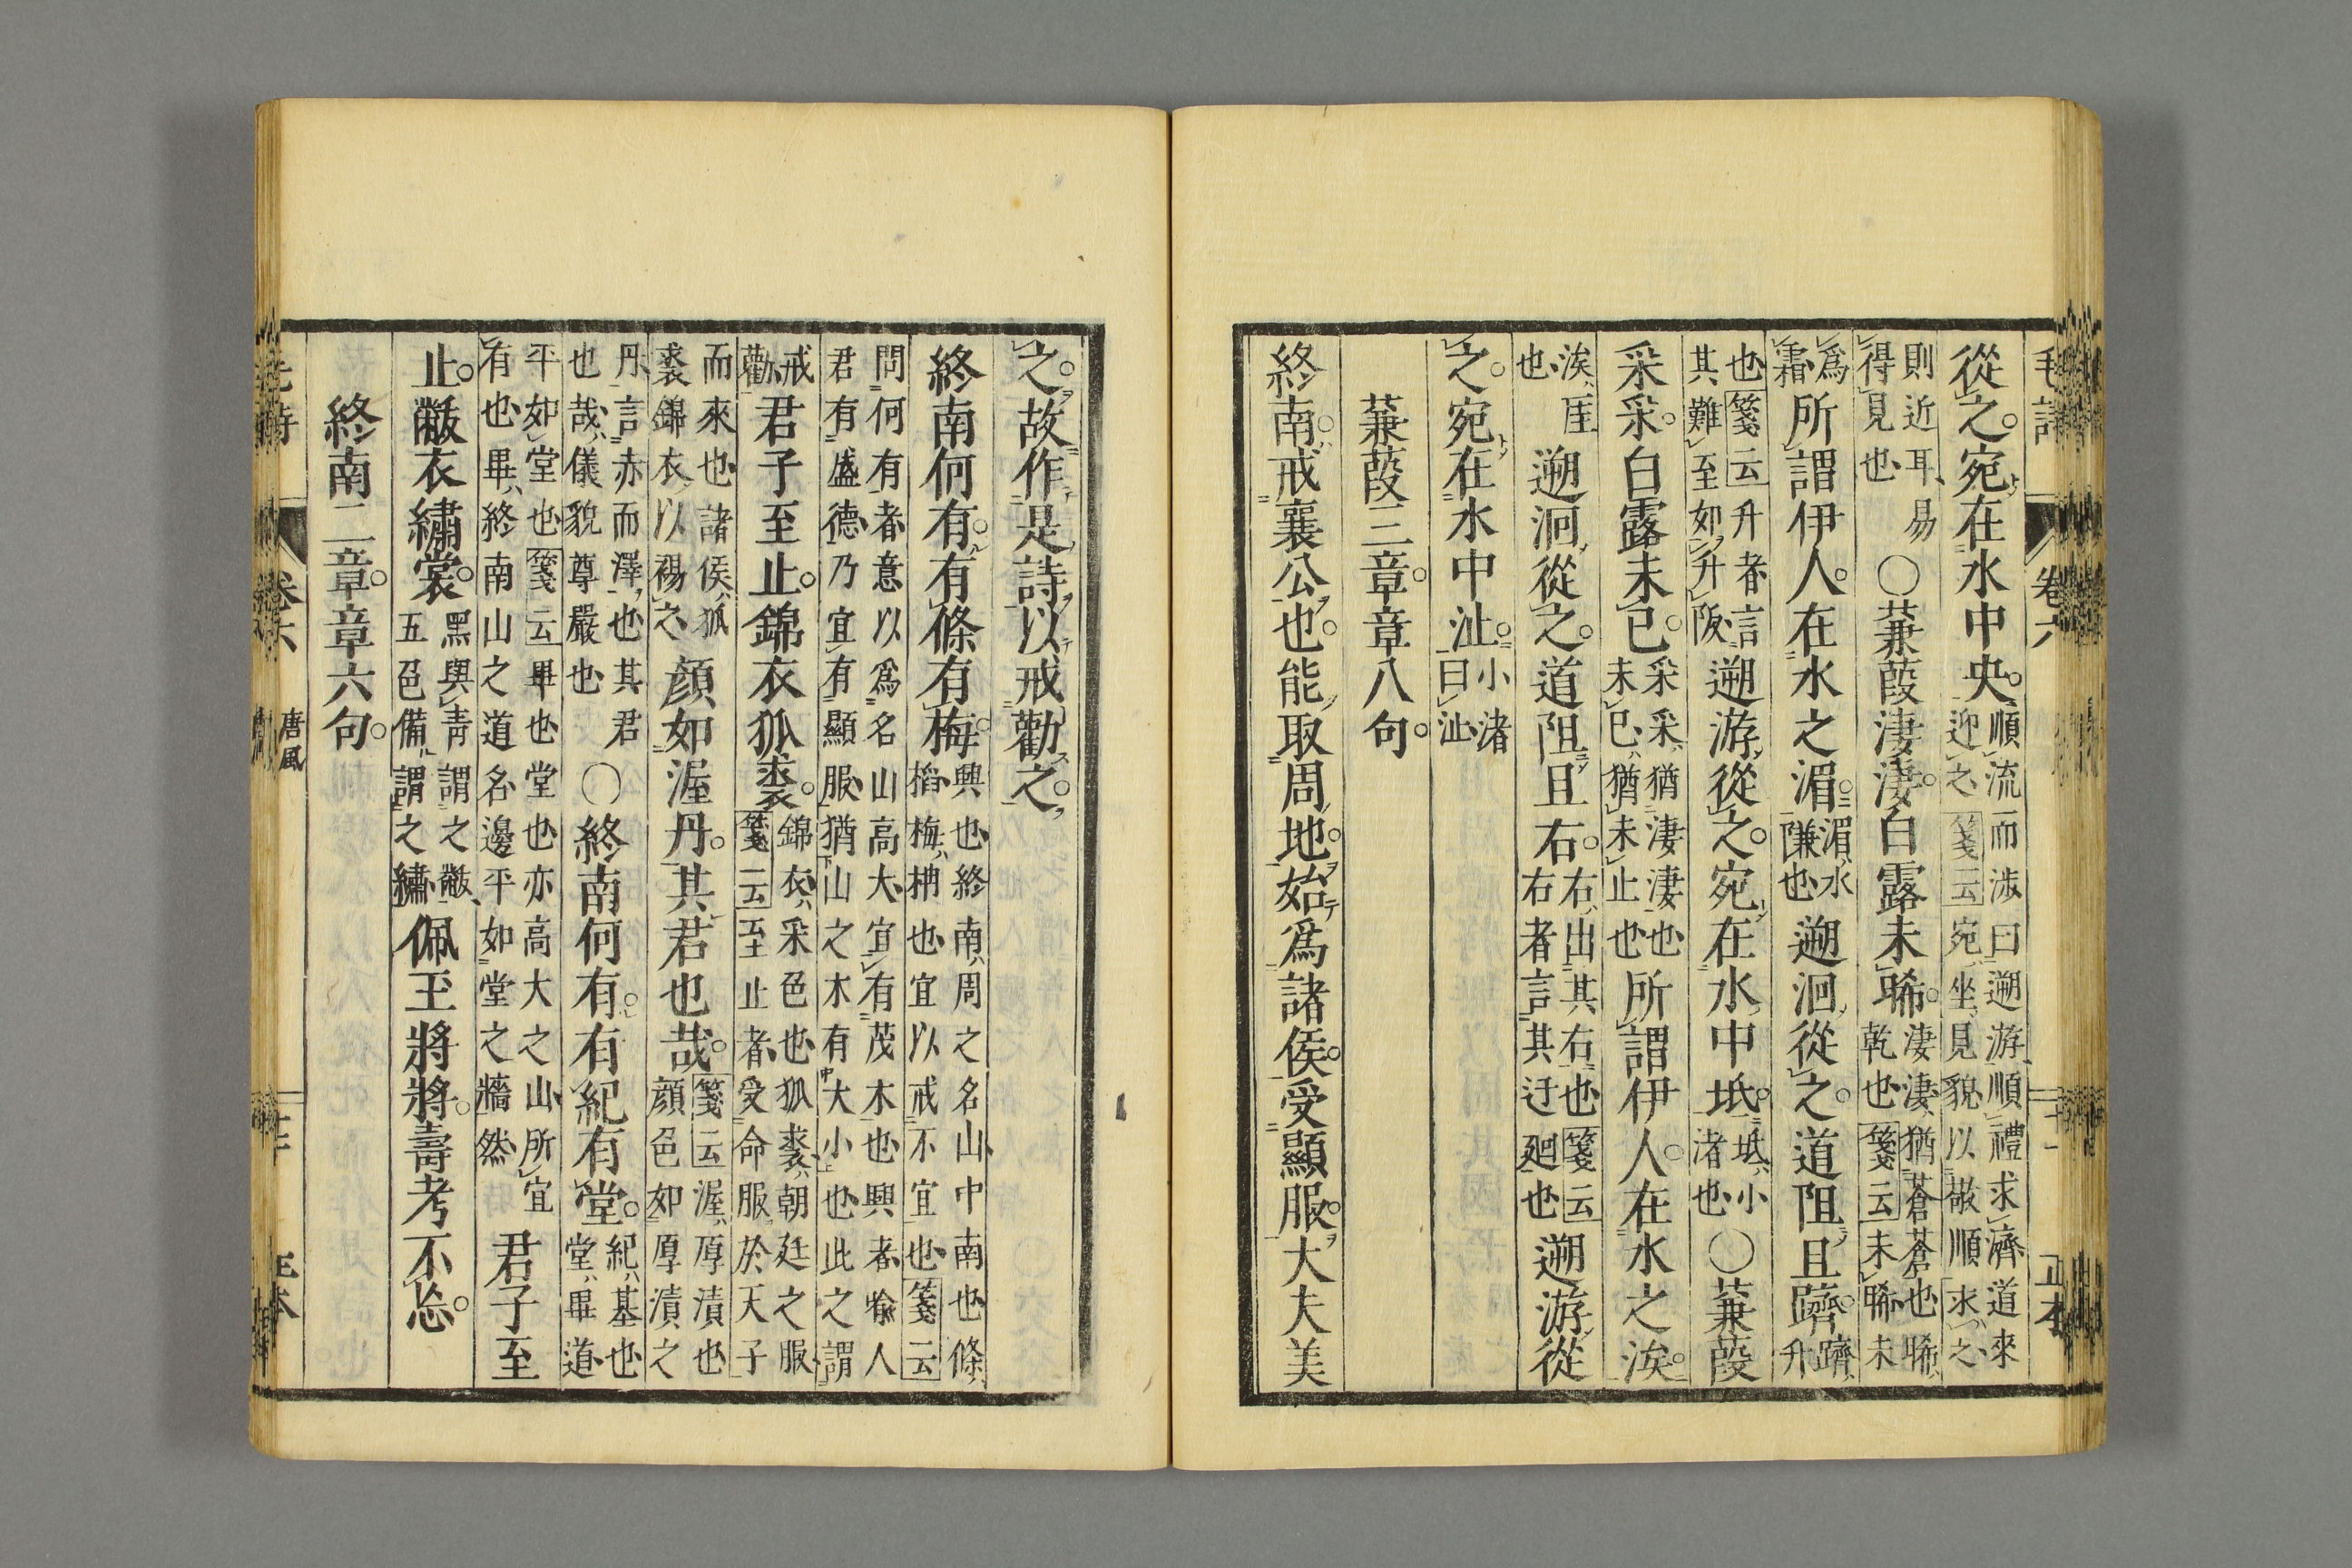 毛詩 卷六 二十一 正本
從之宛在水中央順流而涉曰遡游順禮求濟道來迎之箋云宛坐見貌以敬順求之
則近耳易得見也○蒹葭淒淒白露未晞淒淒猶蒼蒼也晞乾也箋云未晞未
爲霜所謂伊人在水之湄湄水隒也遡洄從之道阻且躋躋升
也箋云升者言其難至如升阪遡游從之宛在水中坻坻小渚也○蒹葭
采采白露未已采采猶淒淒也未已猶未止也所謂伊人在水之涘
涘厓也遡洄從之道阻且右右出其右也箋云右者言其迂廻也遡游從
之宛在水中沚小渚曰沚
蒹葭三章章八句
終南戒襄公也能取周地始爲諸侯受顯服大夫美
之故作是詩以戒勸之
終南何有有條有梅興也終南周之名山中南也條槄梅柟也宜以戒不宜也箋云
問何有者意以爲名山高大宜有茂木也興者喩人君有盛德乃宜有顯服猶山之木有大小也此之謂
戒勸君子至止錦衣狐裘錦衣采色也狐裘朝廷之服箋云至止者受命服於天子
而來也諸侯狐裘錦衣以裼之顔如渥丹其君也哉箋云渥厚漬也顔色如厚漬之
丹言赤而澤也其君也哉儀貌尊嚴也○終南何有有紀有堂紀基也堂畢道
平如堂也箋云畢也堂也亦高大之山所宜有也畢終南山之道名邊平如堂之牆然君子至
止黻衣繡裳黑與靑謂之黻五色備謂之繡佩玉將將壽考不忘
終南二章章六句
毛詩 卷六 唐風 二十 正本